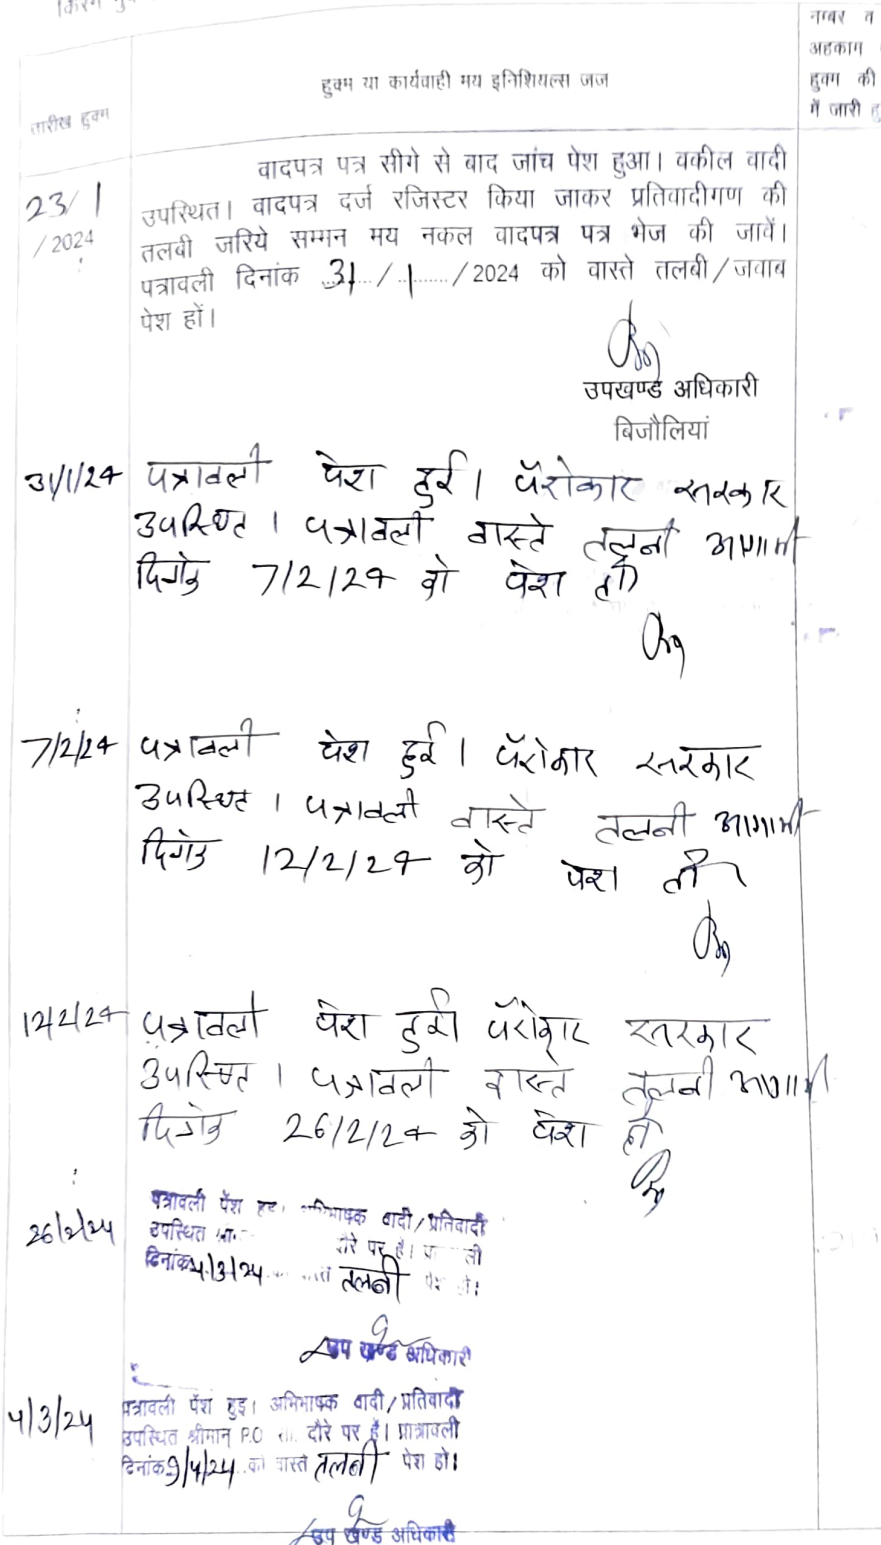 नम्बर त
अहकाम
हुक्म की
में जारी हु
हुक्म या कार्यवाही मय इनिशियल्स जज
तारीख हुक्म
वादपत्र पत्र सीगे से बाद जांच पेश हुआ। वकील वादी
23/1/2024
उपस्थित। वादपत्र दर्ज रजिस्टर किया जाकर प्रतिवादीगण की
तलबी जरिये सम्मन मय नकल वादपत्र पत्र भेज की जावें।
पत्रावली दिनांक 31/1/2024 को वास्ते तलबी/जवाब
पेश हों।
उपखण्ड अधिकारी
बिजौलियां
31/1/24 पत्रावली पेश हुई। पॅरोकार सरकार
उपस्थित। पत्रावली वास्ते तलबी आगामी
दिनांक 7/2/24 को पेश हो
7/2/24 पत्रावली पेश हुई। पॅरोकार सरकार
उपस्थित। पत्रावली वास्ते तलबी आगामी
दिनांक 12/2/24 को पेश हो
12/2/24 पत्रावली पेश हुई। पॅरोकार सरकार
उपस्थित। पत्रावली वास्ते तलबी आगामी
दिनांक 26/2/24 को पेश हो
पत्रावली पेश वादी/प्रतिवादी
26/2/24 उपस्थित दौरे पर है।
दिनांक 4/3/24 तलबी
उप खण्ड अधिकारी
पत्रावली पेश हुइ। अभिभाषक वादी/प्रतिवादी
4/3/24 उपस्थित श्रीमान् P.O दौरे पर है। पत्रावली
दिनांक 9/4/24 को वास्ते तलबी पेश हो।
उप खण्ड अधिकारी